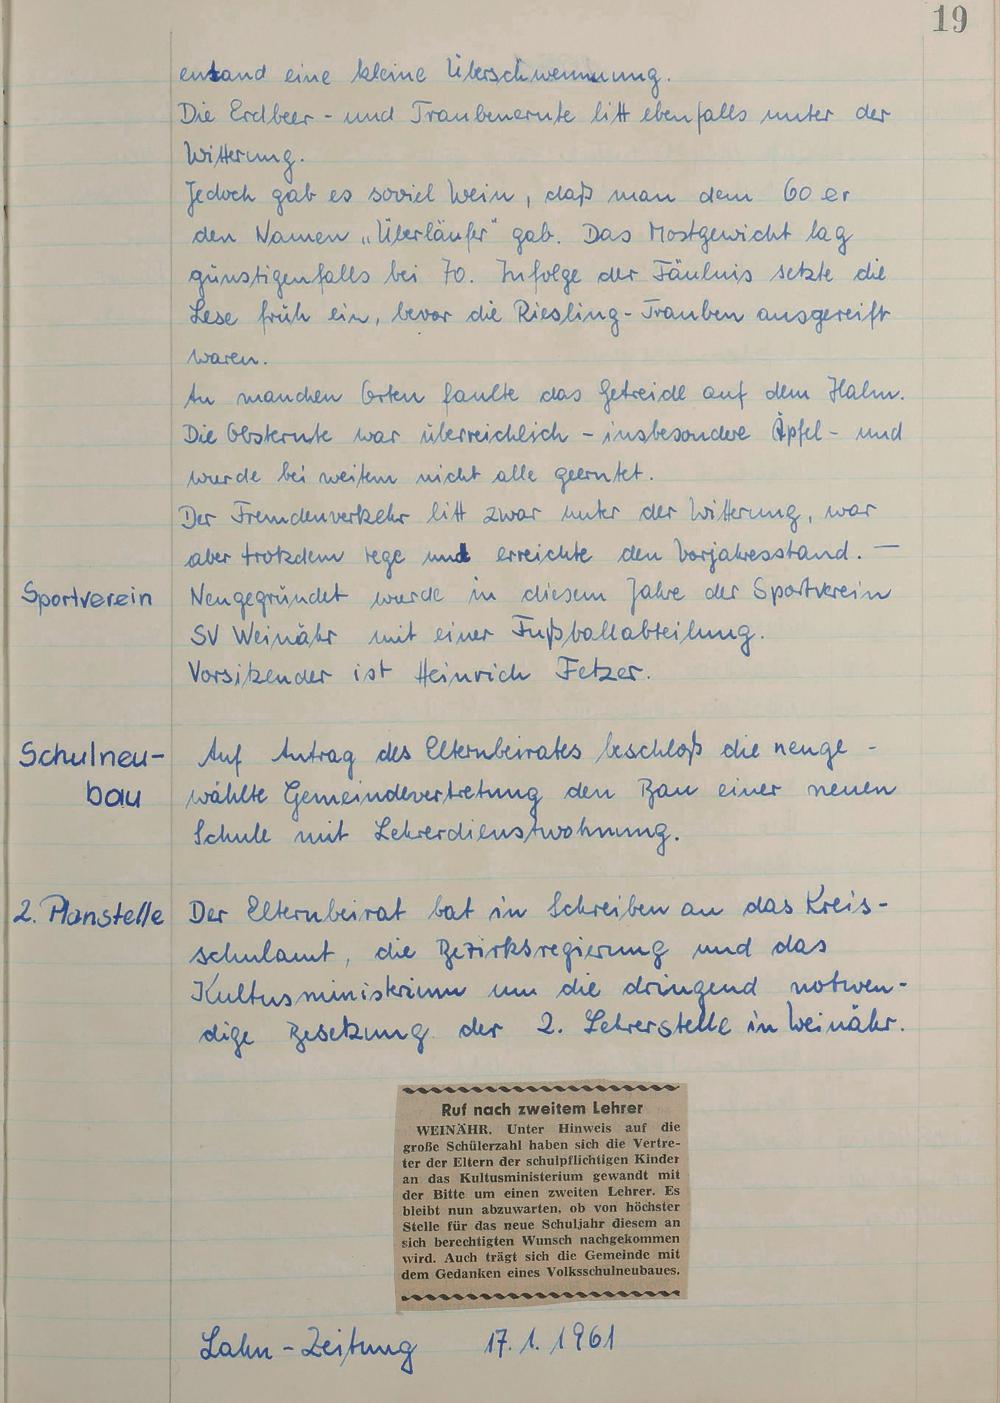 19
entand eine kleine Überschwemmung.
Die Erdbeer- und Traubenernte litt ebenfalls unter der
Witterung.
Jedoch gab es soviel Wein, daß man dem 60er
den Namen „Überläufer" gab. Das Mostgewicht lag
günstigenfalls bei 70. Infolge der Fäulnis setzte die
Lese früh ein, bevor die Riesling-Trauben ausgereift
waren.
An manchen Orten faulte das Getreide auf dem Halm.
Die Obsternte war überreichlich - insbesondere Äpfel - und
wurde bei weitem nicht alle geerntet.
Der Fremdenverkehr litt zwar unter der Witterung, war
aber trotzdem rege und erreichte den Vorjahresstand. —
Sportverein Neugegründet wurde in diesem Jahre der Sportverein
SV Weinähr mit einer Fußballabteilung.
Vorsitzender ist Heinrich Fetzer.
Schulneu- Auf Antrag des Elternbeirates beschloß die neuge-
bau wählte Gemeindevertretung den Bau einer neuen
Schule mit Lehrerdienstwohnung.
2. Planstelle Der Elternbeirat bat in Schreiben an das Kreis-
schulamt, die Bezirksregierung und das
Kultusministerium um die dringend notwen-
dige Besetzung der 2. Lehrerstelle in Weinähr.
Ruf nach zweitem Lehrer
WEINÄHR. Unter Hinweis auf die
große Schülerzahl haben sich die Vertre-
ter der Eltern der schulpflichtigen Kinder
an das Kultusministerium gewandt mit
der Bitte um einen zweiten Lehrer. Es
bleibt nun abzuwarten, ob von höchster
Stelle für das neue Schuljahr diesem an
sich berechtigten Wunsch nachgekommen
wird. Auch trägt sich die Gemeinde mit
dem Gedanken eines Volksschulneubaues.
Lahn-Zeitung 17.1.1961